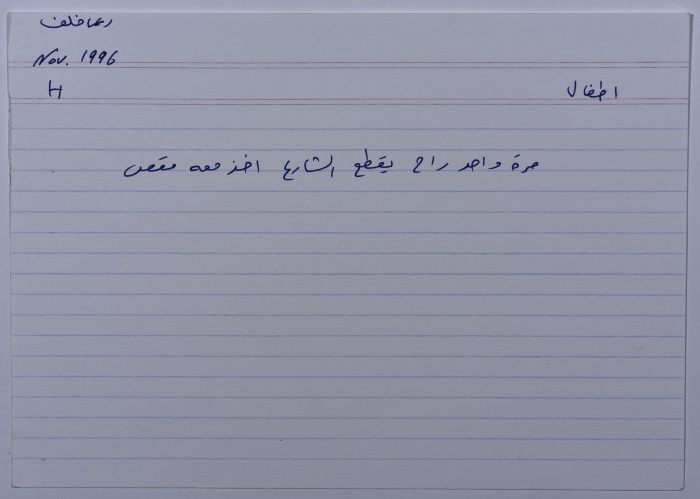 ريما خلف
Nov. 1996
H
اطفال
مرة واحد راح يقطع الشارع اخذ معه مقص